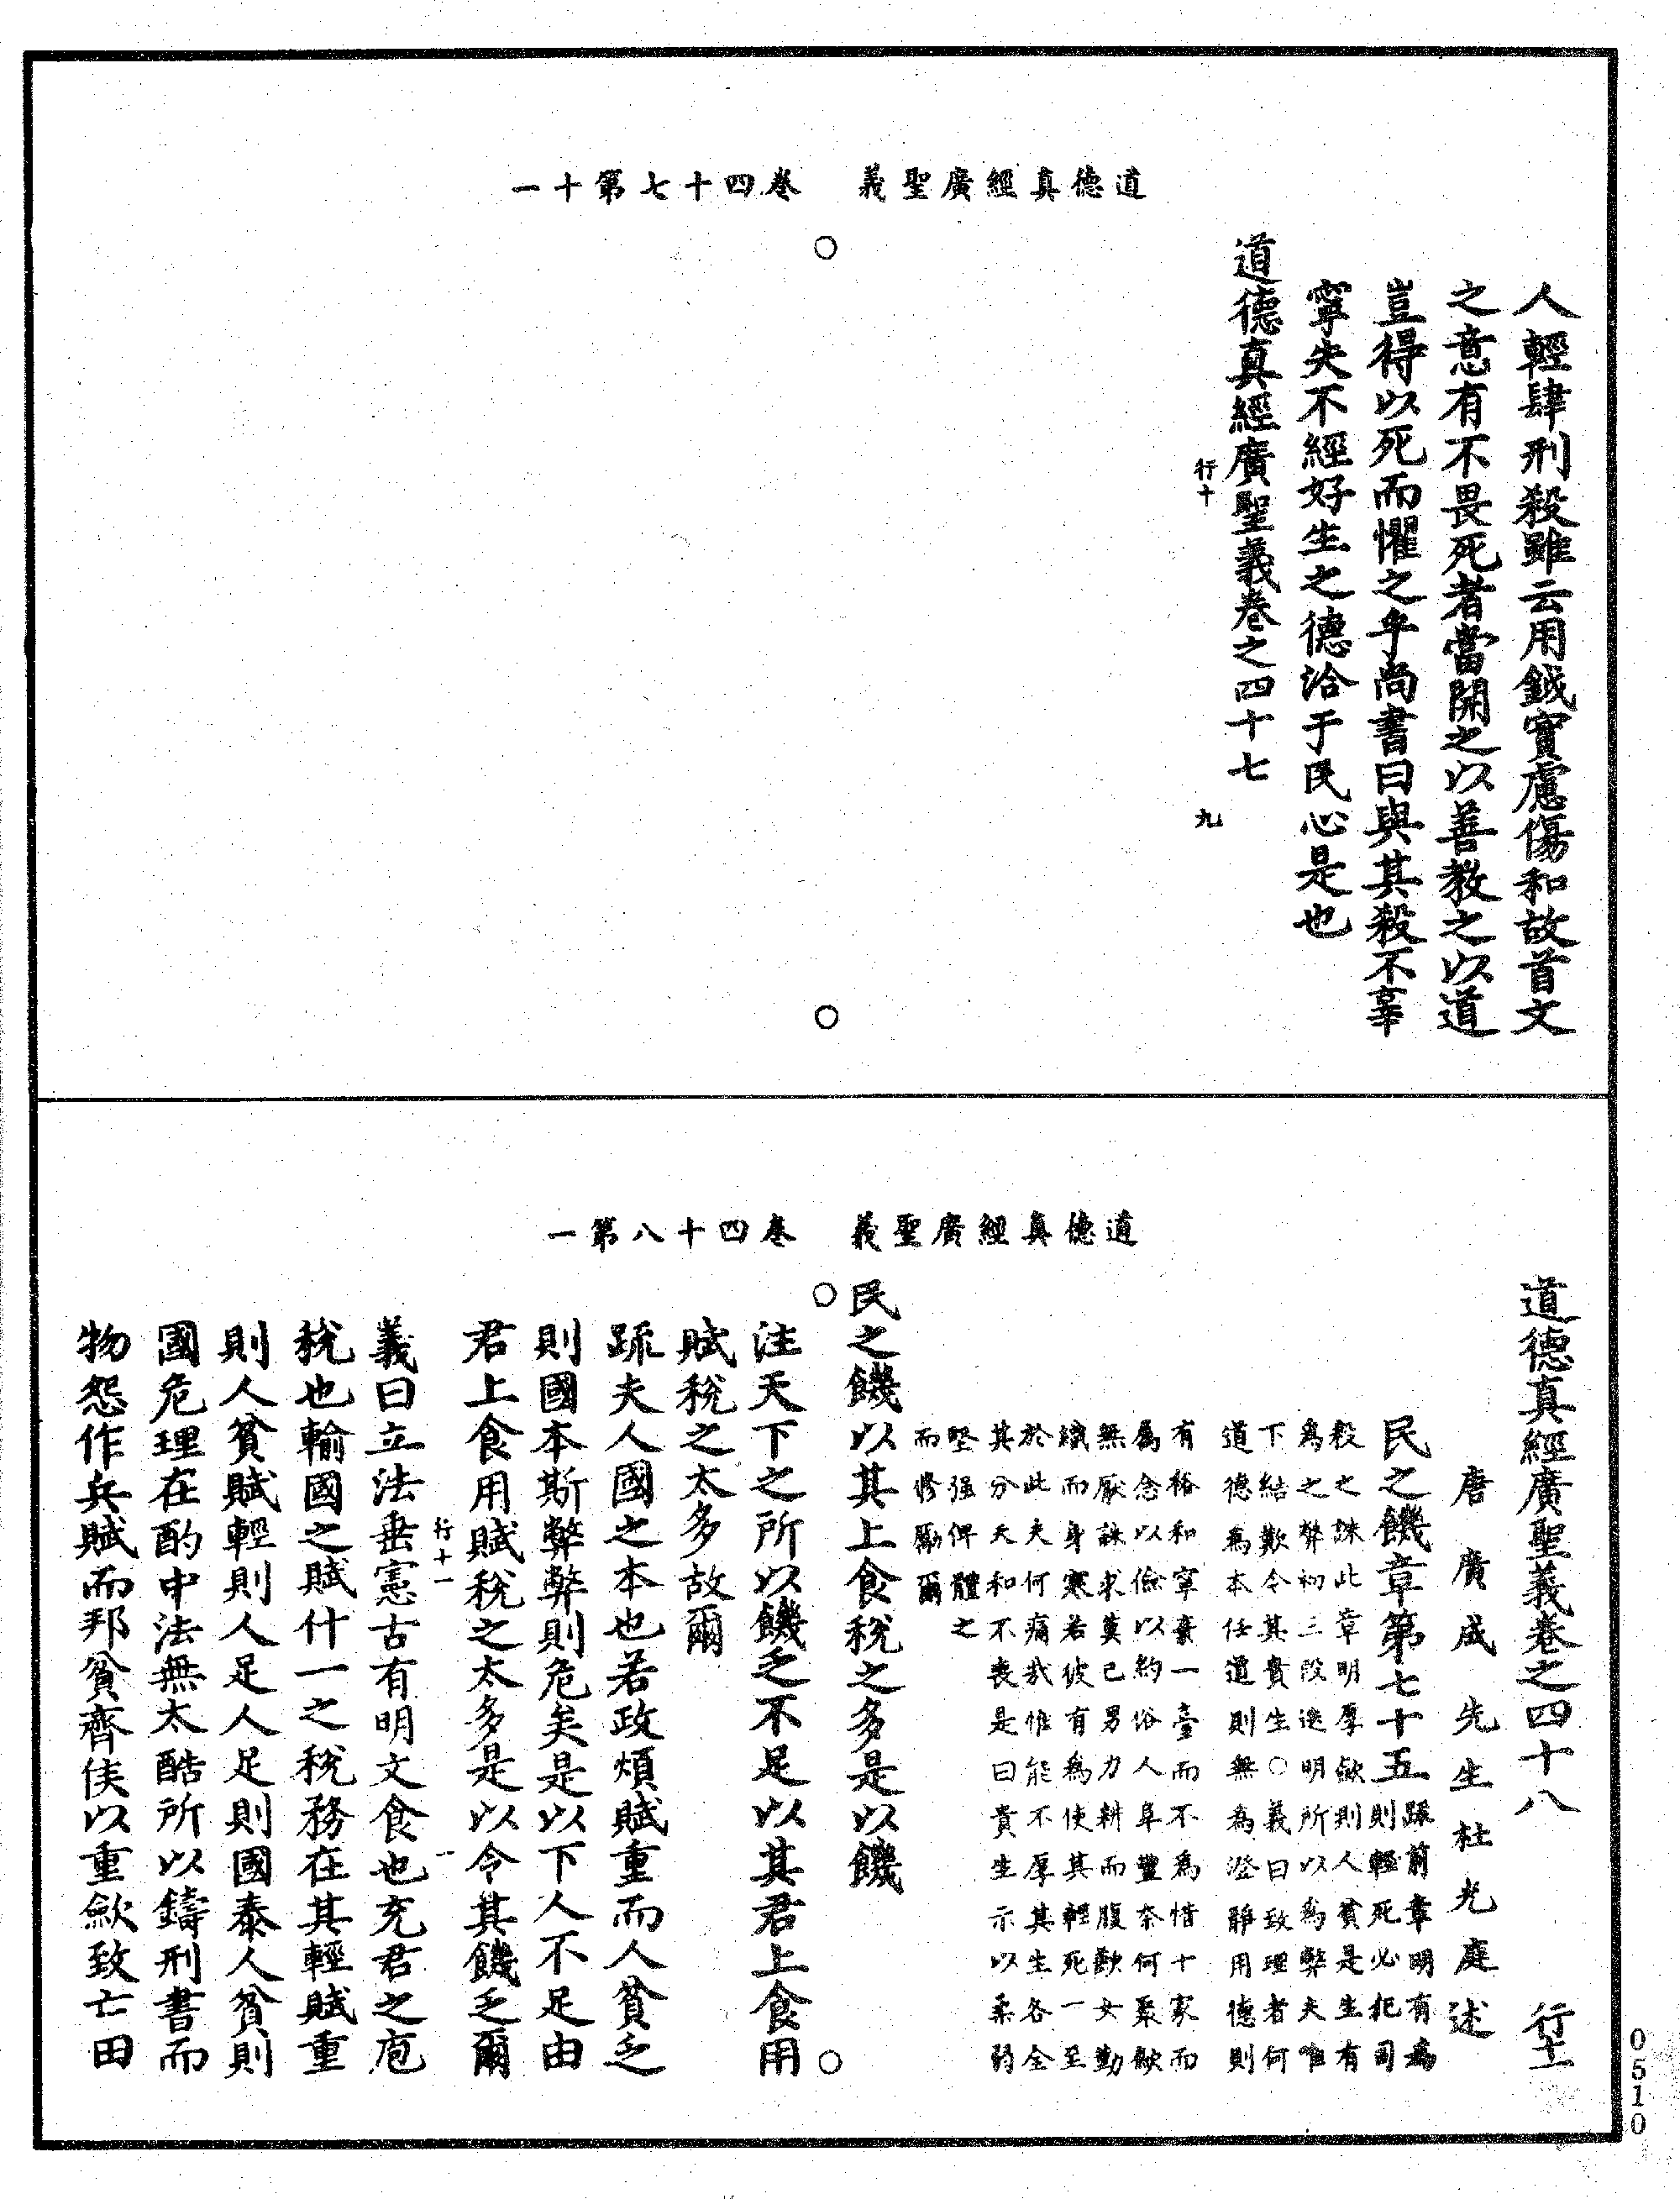 道德真經廣聖義　卷四十七第十一
人輕肆刑殺雖云用鉞實慮傷和故首文
之意有不畏死者當開之以善教之以道
豈得以死而懼之乎尚書曰與其殺不辜
寧失不經好生之德洽于民心是也
道德真經廣聖義卷之四十七
行十　九
道德真經廣聖義　卷四十八第一
道德真經廣聖義卷之四十八　行十一
唐廣成先生杜光庭述
民之饑章第七十五
疏前章明有為
則輕死必犯司
殺之誅此章明厚歛則人貧是生有
為之弊初三段迭明所以為弊夫唯
下結歎令其貴生○義曰致理者何
道德為本任道則無為澄靜用德則
有裕和寧棄一臺而不為惜十家而
屬念以儉以約俗人阜豐奈何聚歛
無厭誅求莫已男力耕而腹歉女勤
織而身寒若彼有為使其輕死一至
於此夫何痛哉惟能不厚其生各全
其分天和不喪是曰貴生示以柔弱
堅强俾體之
而修勵爾
民之饑以其上食稅之多是以饑
注天下之所以饑乏不足以其君上食用
賦稅之太多故爾
疏夫人國之本也若政煩賦重而人貧乏
則國本斯弊弊則危矣是以下人不足由
君上食用賦稅之太多是以令其饑乏爾
行十一　一
義曰立法垂憲古有明文食也充君之庖
稅也輸國之賦什一之稅務在其輕賦重
則人貧賦輕則人足人足則國泰人貧則
國危理在酌中法無太酷所以鑄刑書而
物怨作兵賦而邦貧齊侯以重歛致亡田
0510